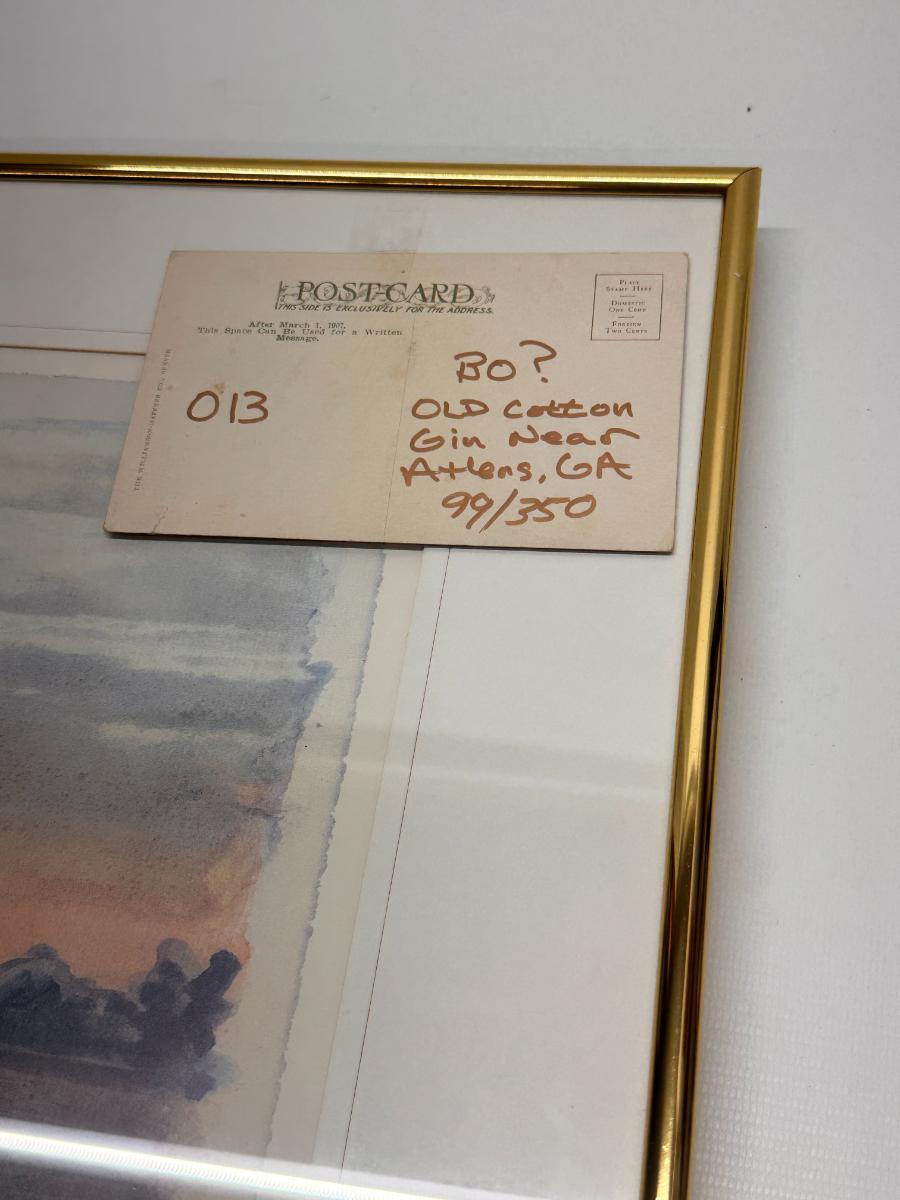 POST-CARD
THIS SIDE IS EXCLUSIVELY FOR THE ADDRESS.
After March 1, 1907,
This Space Can Be Used for a Written
Message.
PLACE
STAMP HERE
DOMESTIC
ONE CENT
FOREIGN
TWO CENTS
013
BO?
OLD Cotton
Gin Near
Athens, GA
99/350
THE WILLIAMSON-HAFFNER CO., DENVER